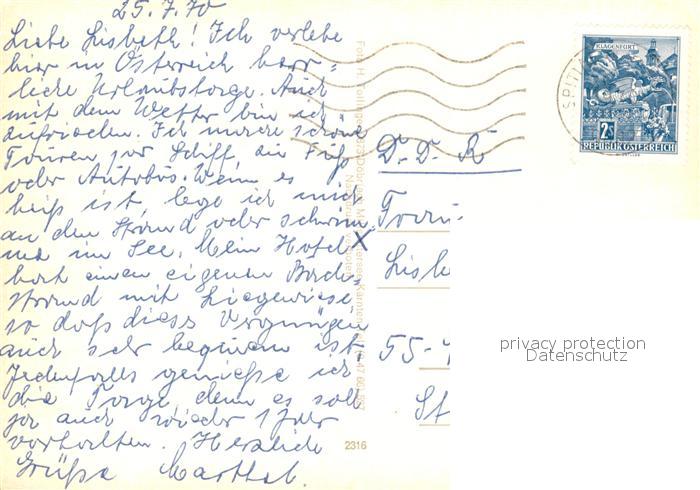 25.7.70
Liebe Lisbeth! Ich verlebe
hier in Österreich herr-
liche Urlaubstage. Auch
mit dem Wetter bin ich
zufrieden. Ich mache schöne
Touren per Schiff, zu Fuß
oder Autobus. Wenn es
heiß ist, lege ich mich
an den Strand oder schwim-
me im See. Mein Hotel
hat einen eigenen Bade-
strand mit Liegewiese
so daß dieses Vergnügen
auch sehr bequem ist.
Jedenfalls genieße ich
die Tage, denn es soll
ja auch wieder 1 Jahr
vorhalten. Herzliche
Grüße
D. D. R
Lisb
55-
St
KLAGENFURT
2S
REPUBLIK ÖSTERREICH
SPITT
2316
privacy protection
Datenschutz